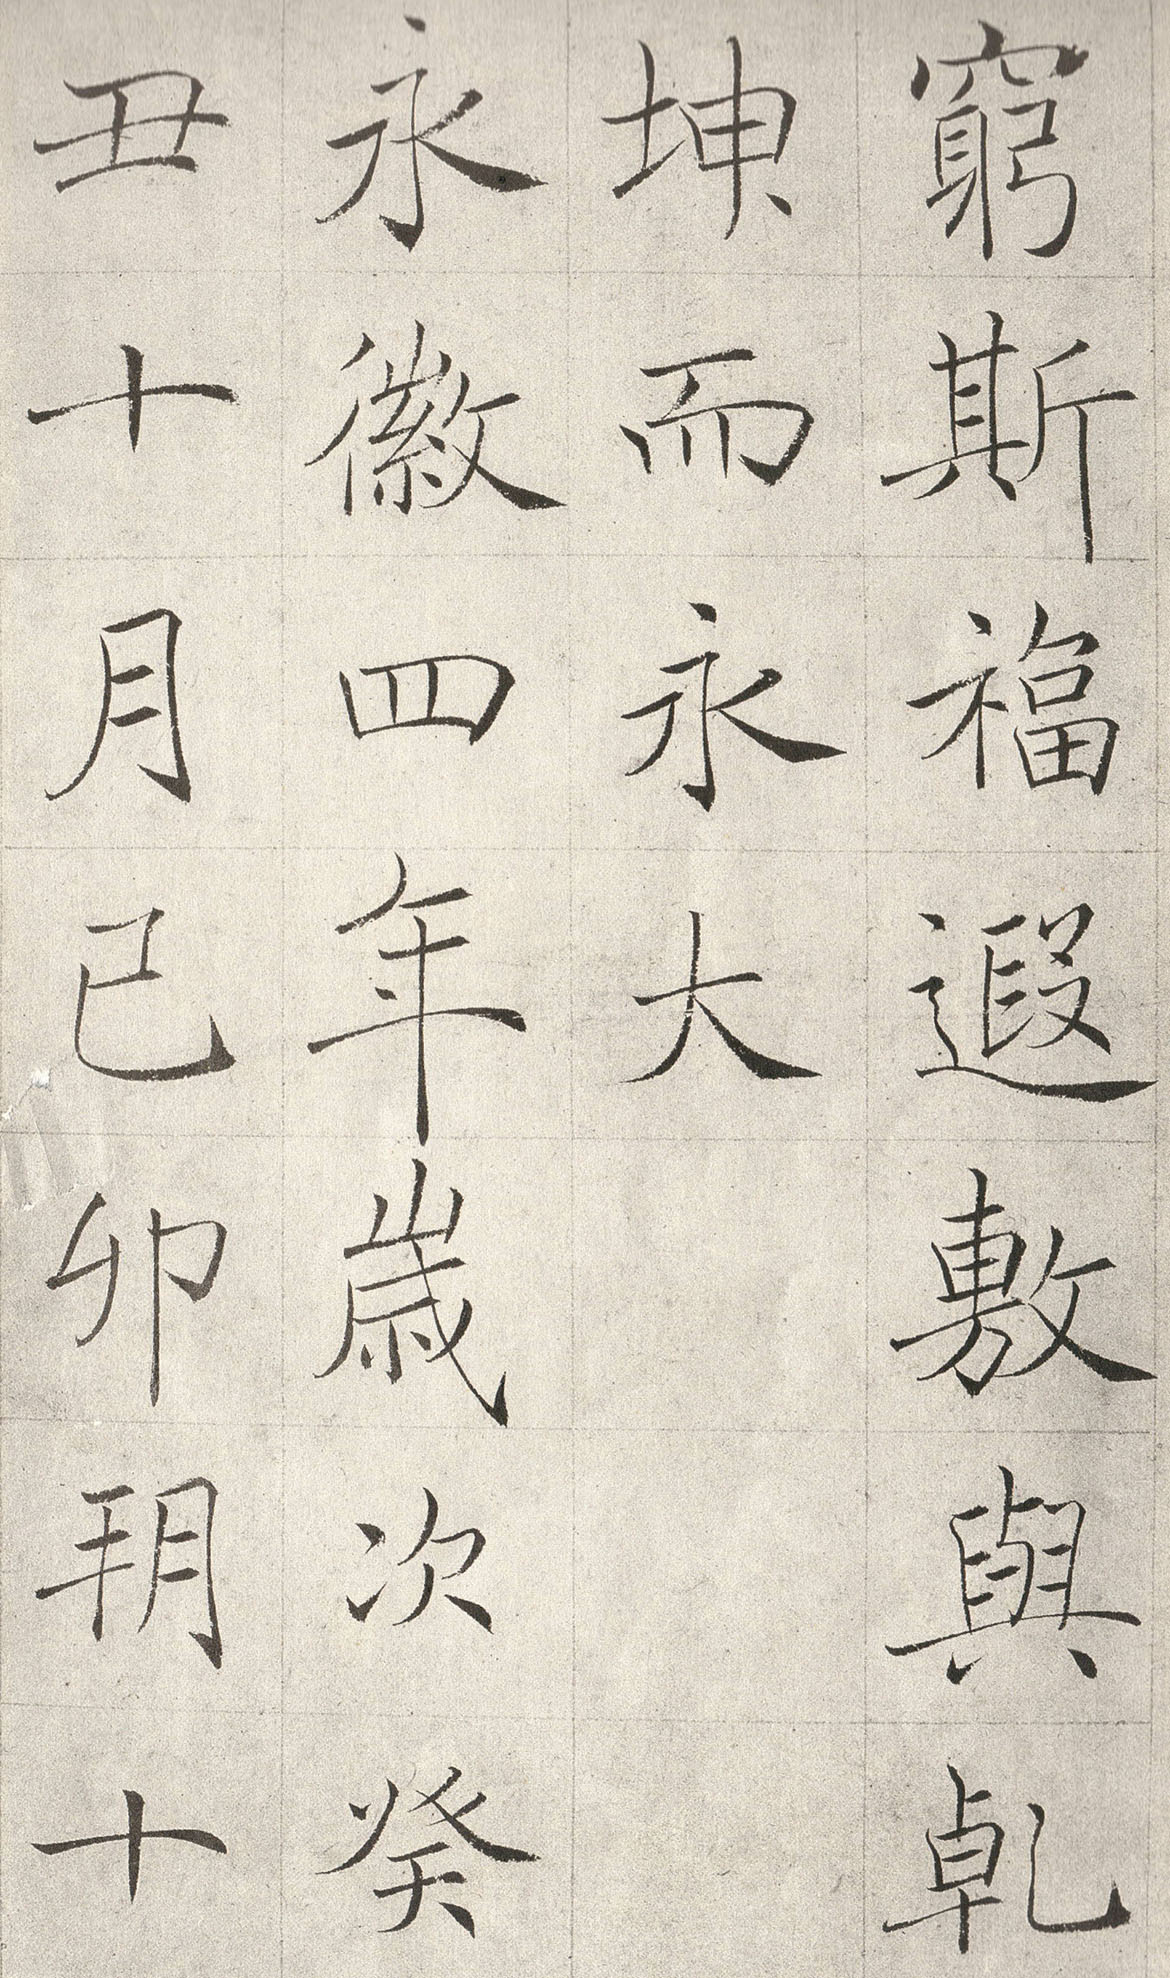 窮斯福遐敷與乹
坤而永大
永徽四年歳次癸
丑十月己卯朔十